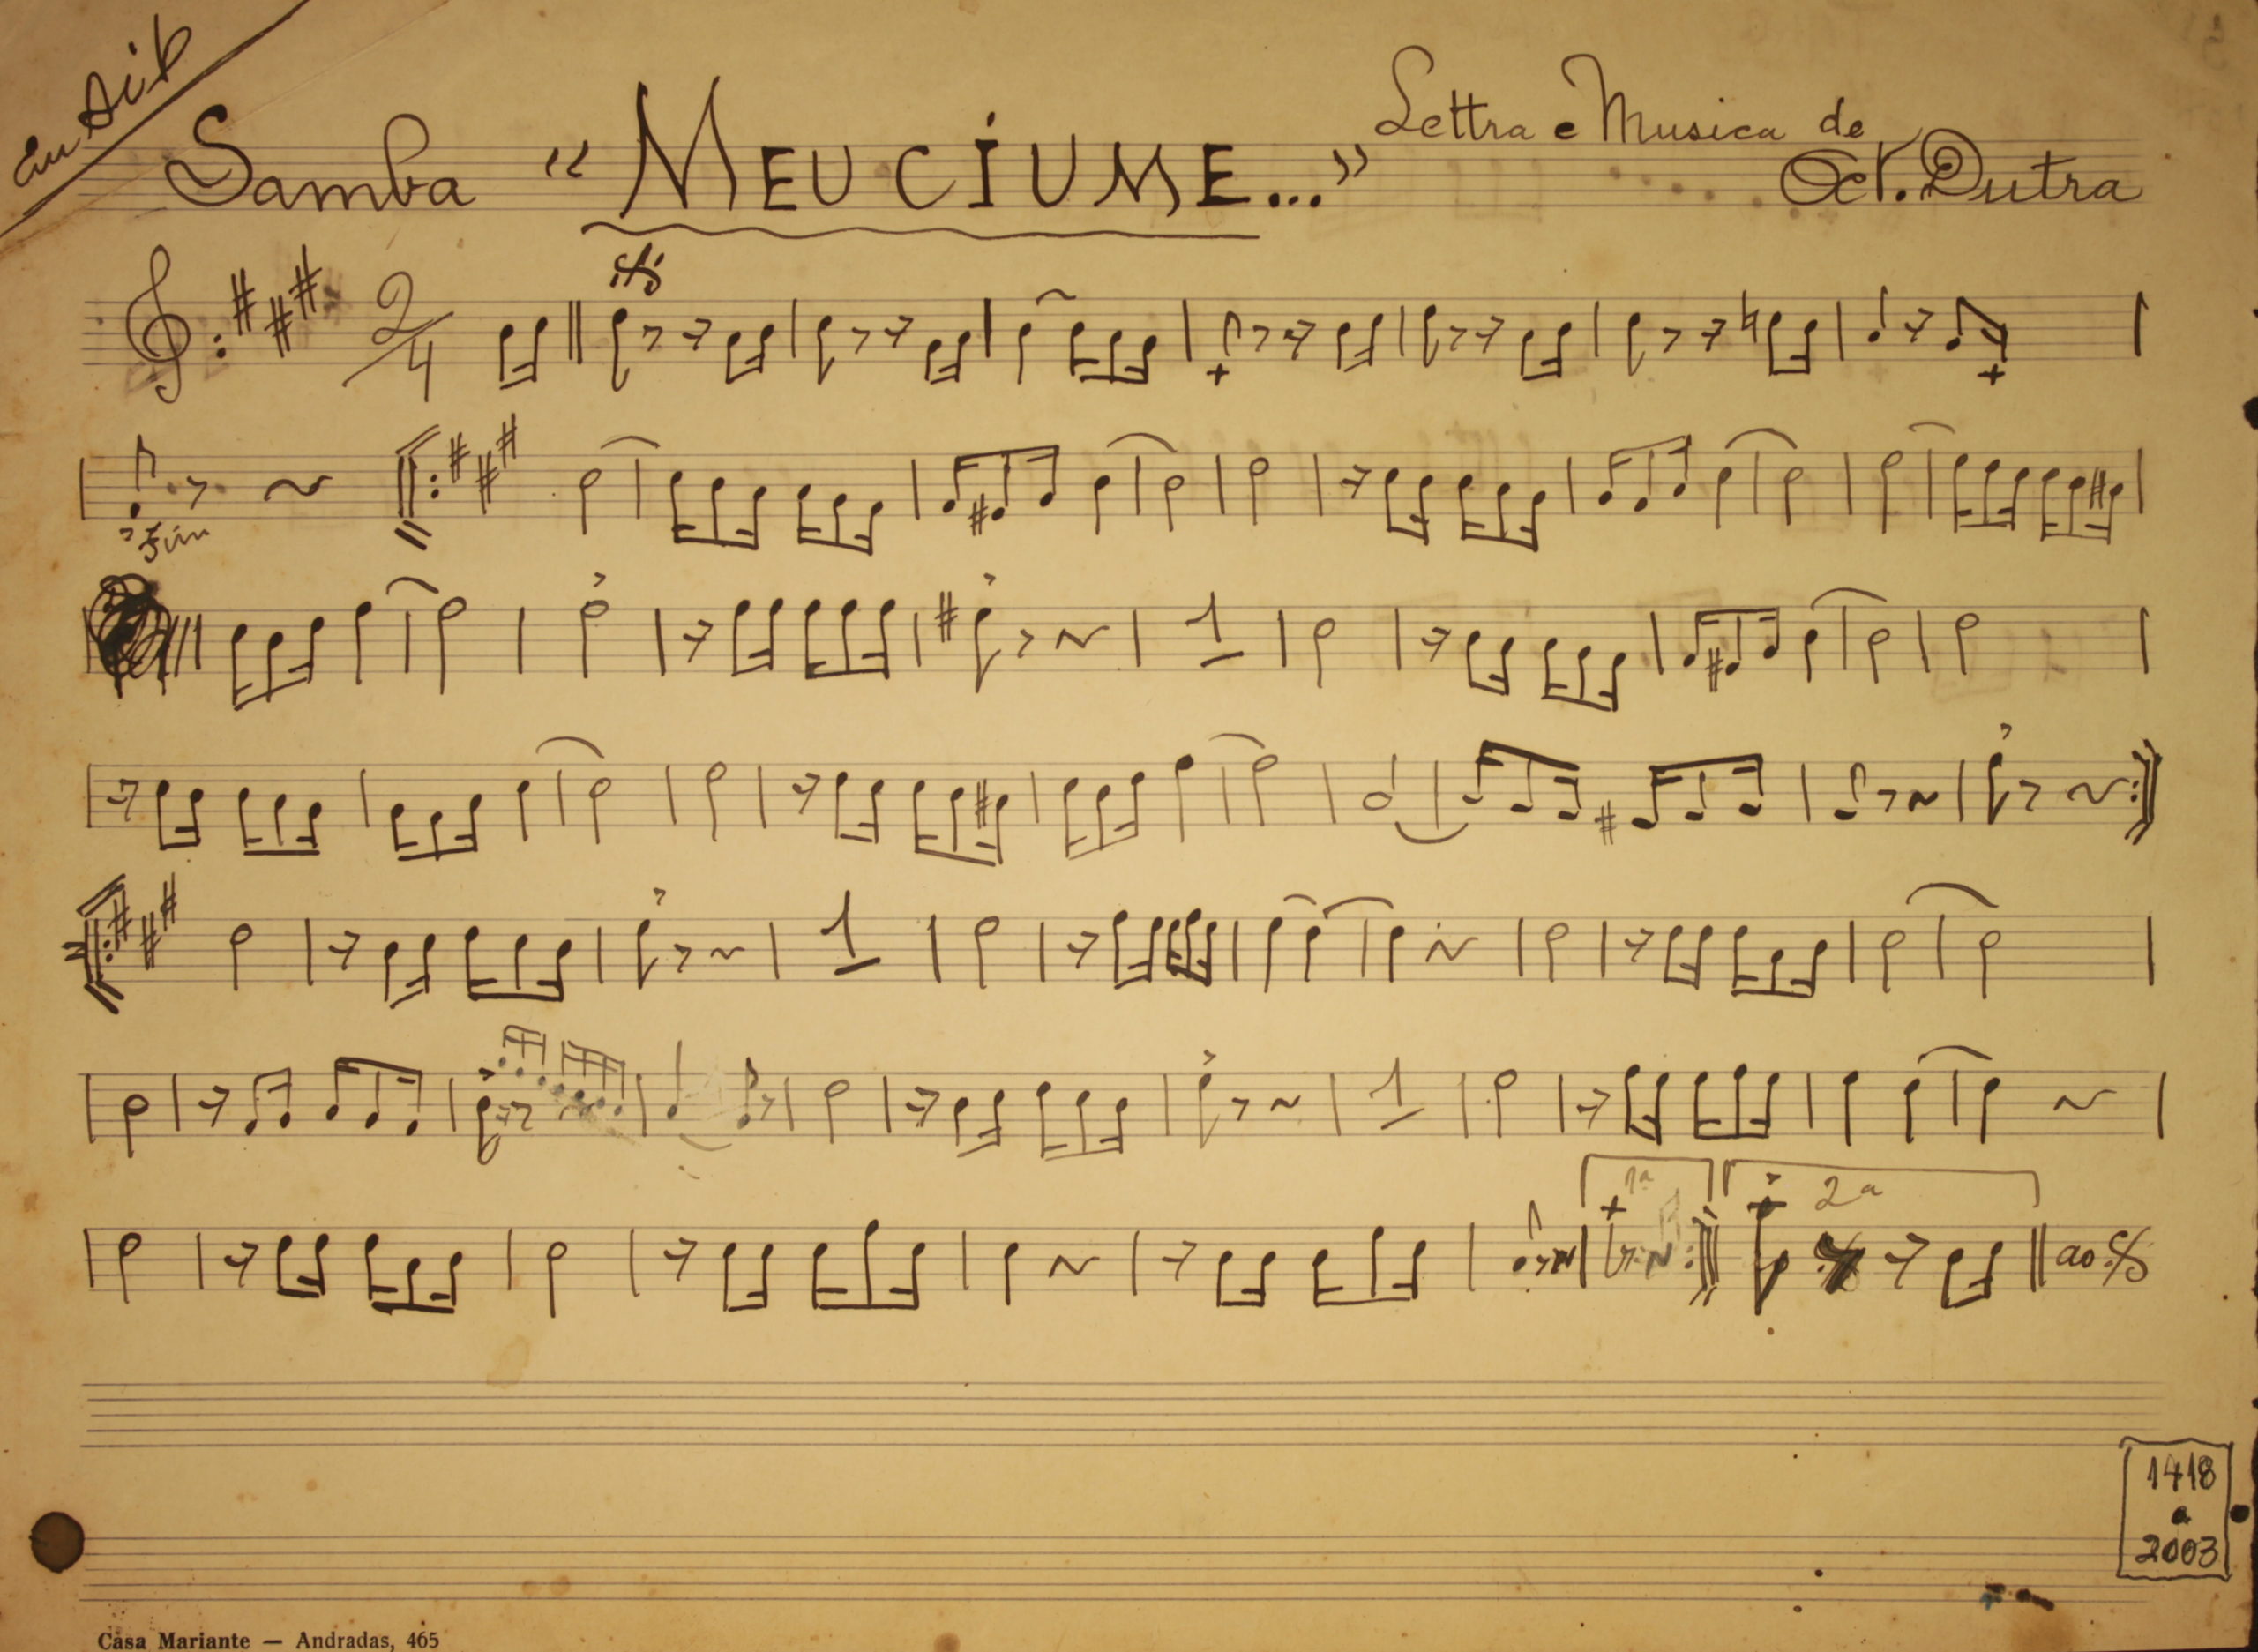 em Sib
Samba " MEU CÍUME... " Lettra e Musica de
Oct. Dutra
2/4
Fim
1
1
1 1
1ª 2ª
ao
1418
a
2003
Casa Mariante — Andradas, 465